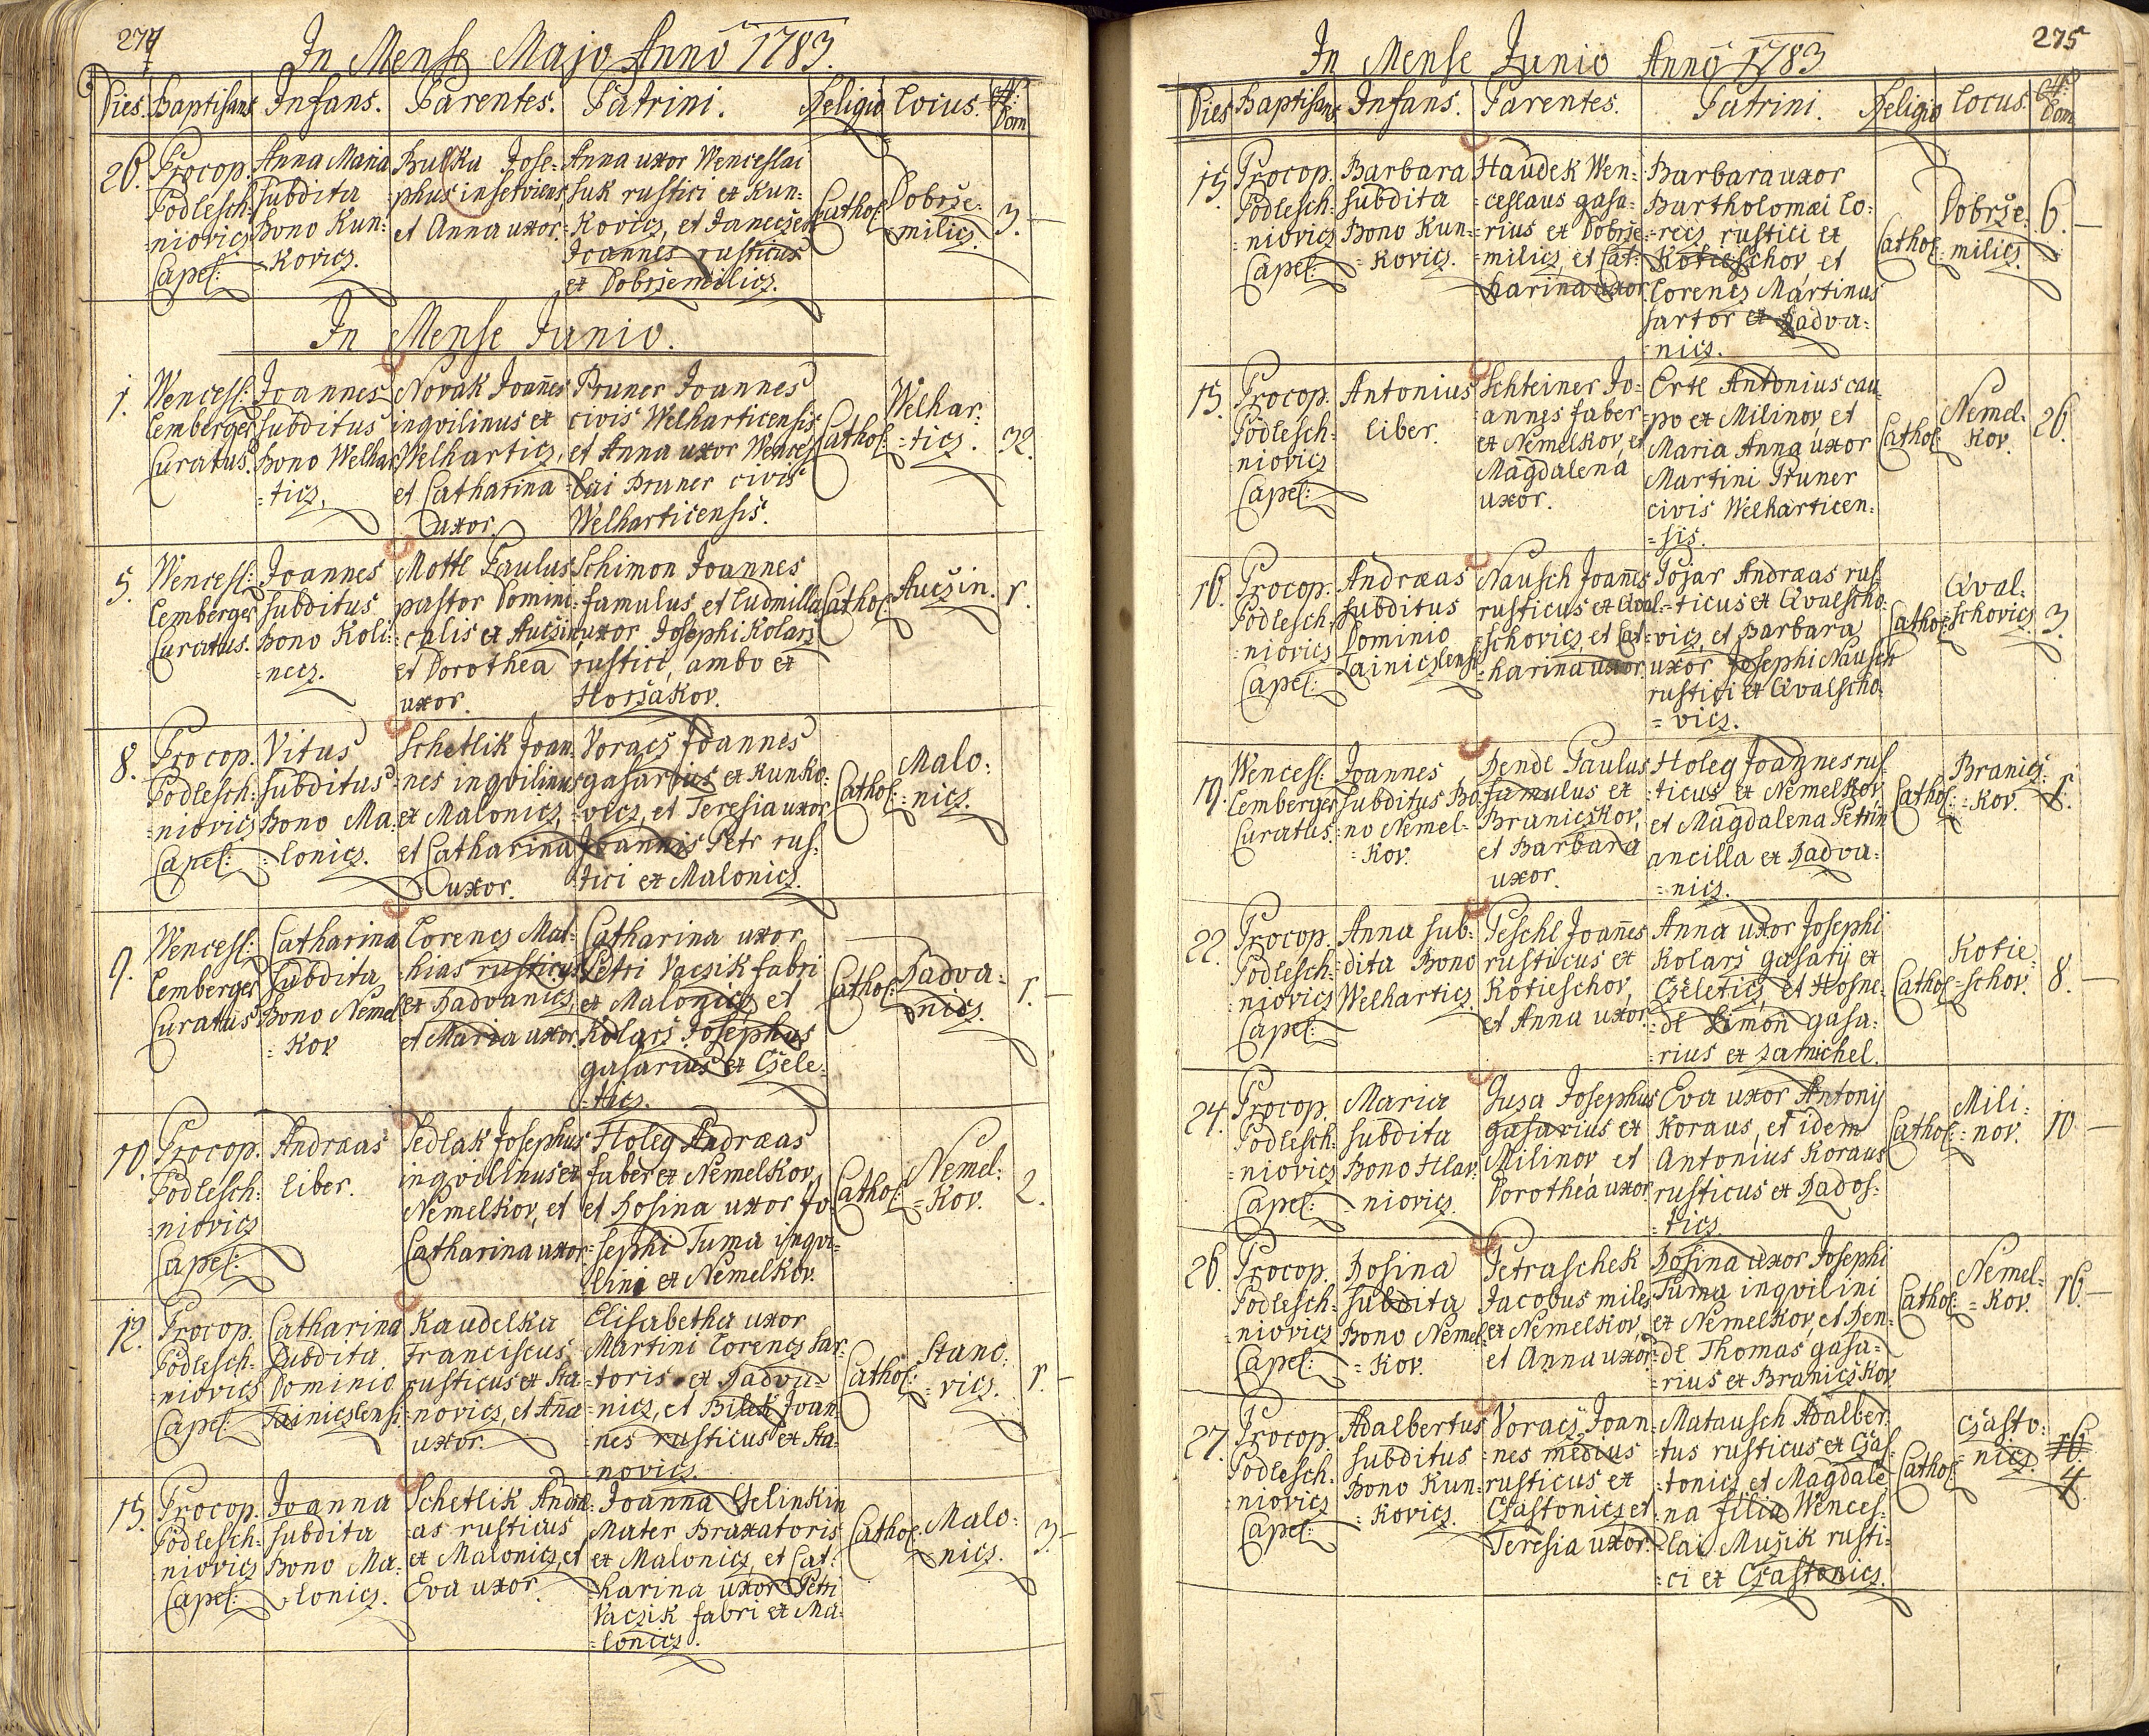 274
In Mense Majo Anno 1783.
Dies. Baptisans Infans. Parentes. Patrini. Religio Locus. N: Dom
26. Procop. Podlesch: =niovicz Capel:
Anna Maria subdita Bono Kun: =kovicz.
Bulku Jose= phus inserviens, et Anna uxor.
Anna uxor Wenceslai
suk rustici ex Kun=
=kovicz, et Janeczek
Joannes rusticus
ex Dobržemilicz.
Cathol: Dobrže= =milicz. 3.
In Mense Junio.
1. Wencesl: Lemberger Curatus.
Joannes subditus Bono Welhar =ticz.
Novak Joannes inqvilinus ex Welharticz, et Catharina uxor.
Pruner Joannes
civis Welharticensis
et Anna uxor Wences=
=lai Pruner civis
Welharticensis.
Cathol: Welhar: =ticz. 32.
5. Wencesl: Lemberger Curatus.
Joannes subditus Bono Koli= =necz.
Mottl Paulus pastor Domini= =calis ex Auczin, et Dorothea uxor.
Schimon Joannes
famulus, et Ludmilla
uxor Josephi Kolarž
rustici, ambo ex
Horžakov.
Cathol: Auczin. 1.
8. Procop. Podlesch: =niovicz Capel:
Vitus subditus Bono Ma: =lonicz.
Schetlik Joan =nes inqvilinus ex Malonicz, et Catharina uxor.
Voracz Joannes
gasarius ex Kunko=
=vicz, et Teresia uxor
Joannis Petr rus=
tici ex Malonicz.
Cathol: Malo: =nicz.
9. Wencesl: Lemberger Curatus
Catharina subdita Bono Nemel =kov
Lorencz Mat= =hias rusticus ex Radvanicz, et Maria uxor.
Catharina uxor
Petri Vaczik fabri
ex Malonicz, et
Kolarž Josephus
gasarius ex Czele=
=ticz.
Cathol: Radva= =nicz. 1.
10. Procop. Podlesch: =niovicz Capel:
Andræas liber.
Sedlak Josephus inqvilinus ex Nemelkov, et Catharina uxor.
Holeg Andræas
faber ex Nemelkov,
et Rosina uxor Jo=
=sephi Tuma inqvi=
lini ex Nemelkov.
Cathol: Nemel: =kov. 2.
12. Procop. Podlesch= =niovicz Capel:
Catharina subdita Dominio Tainiczlensi
Kaudelka Franciscus rusticus ex Sta= =novicz, et Anna uxor.
Elisabetha uxor
Martini Lorencz sar=
=toris ex Radva=
nicz, et Bilek Joan
nes rusticus ex Sta=
=novicz.
Cathol: Stano: =vicz. 1.
15. Procop. Podlesch: =niovicz Capel:
Joanna subdita Bono Ma: =lonicz.
Schetlik Andræ= as rusticus ex Malonicz, et Eva uxor.
Joanna Gelinkin
Mater Braxatoris
ex Malonicz, et Cat=
=harina uxor Petri
Vaczik fabri ex Ma=
=lonicz.
Cathol: Malo: =nicz. 3.
275
In Mense Junio Anno 1783
Dies Baptisans Infans. Parentes. Patrini. Religio Locus. N: Dom
15. Procop. Podlesch: =niovicz Capel:
Barbara subdita Bono Kun= =kovicz.
Haudek Wen= =ceslaus gasa= rius ex Dobrže =milicz, et Cat= =harina uxor.
Barbara uxor
Bartholomæi Lo=
=recz rustici ex
Kotieschov, et
Lorencz Martinus
sartor ex Radva=
=nicz.
Cathol: Dobrže= milicz. 6.
15. Procop. Podlesch= niovicz Capel:
Antonius liber.
Schteiner Jo= annes faber ex Nemelkov, et Magdalena uxor.
Ertl Antonius cau=
po ex Milinov, et
Maria Anna uxor
Martini Pruner
civis Welharticen=
=sis.
Cathol: Nemel= kov. 26.
16. Procop. Podlesch= =niovicz Capel:
Andræas subditus Dominio Tainiczlensi
Nausch Joannes rusticus ex Qval= =schovicz, et Cat= =harina uxor.
Pojar Andræas rus=
=ticus ex Qvalscho=
vicz, et Barbara
uxor Josephi Nausch
rustici ex Qvalscho=
=vicz.
Cathol: Qval= schovicz. 3.
19. Wencesl: Lemberger Curatus.
Joannes subditus Bo= no Nemel= =kov.
Dendl Paulus famulus ex Braniczkov, et Barbara uxor.
Holeg Joannes rus=
ticus ex Nemelkov,
et Magdalena Petrin
ancilla ex Radva=
=nicz.
Cathol: Branicz= =kov. 8.
22. Procop. Podlesch= niovicz Capel:
Anna sub= dita Bono Welharticz.
Peschl Joannes rusticus ex Kotieschov, et Anna uxor
Anna uxor Josephi
Kolarž gasarij ex
Czeleticz, et Hosne=
=dl Simon gasa=
=rius ex Zamichel.
Cathol: Kotie= =schov. 8.
24. Procop. Podlesch: =niovicz Capel:
Maria subdita Bono Hlav= niovicz.
Juza Josephus gasarius ex Milinov et Dorothea uxor
Eva uxor Antonij
Koraus, et idem
Antonius Koraus
rusticus ex Rados=
=ticz
Cathol: Mili= =nov. 10
26. Procop. Podlesch: =niovicz Capel:
Rosina subdita Bono Nemel =kov.
Petraschek Jacobus miles ex Nemelkov, et Anna uxor.
Rosina uxor Josephi
Tuma inqvilini
ex Nemelkov, et Den=
=dl Thomas gasa=
=rius ex Braniczkov.
Cathol: Nemel= =kov. 16.
27. Procop. Podlesch. niovicz Capel:
Adalbertus subditus Bono Kun= =kovicz.
Voracz Joan =nes medius rusticus ex Czastonicz et Teresia uxor.
Matausch Adalber=
tus rusticus ex Czas=
=tonicz, et Magdale=
na filia Wences=
=lai Mužik rusti=
=ci ex Czastonicz.
Cathol: Czasto= nicz. 16. 4